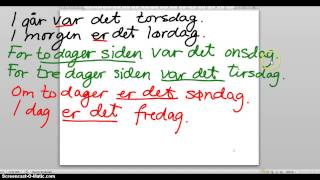 I går var det torsdag.
I morgen er det lørdag.
For to dager siden var det onsdag.
For tre dager siden var det tirsdag.
Om to dager er det søndag.
I dag er det fredag.
Screencast-O-Matic.com